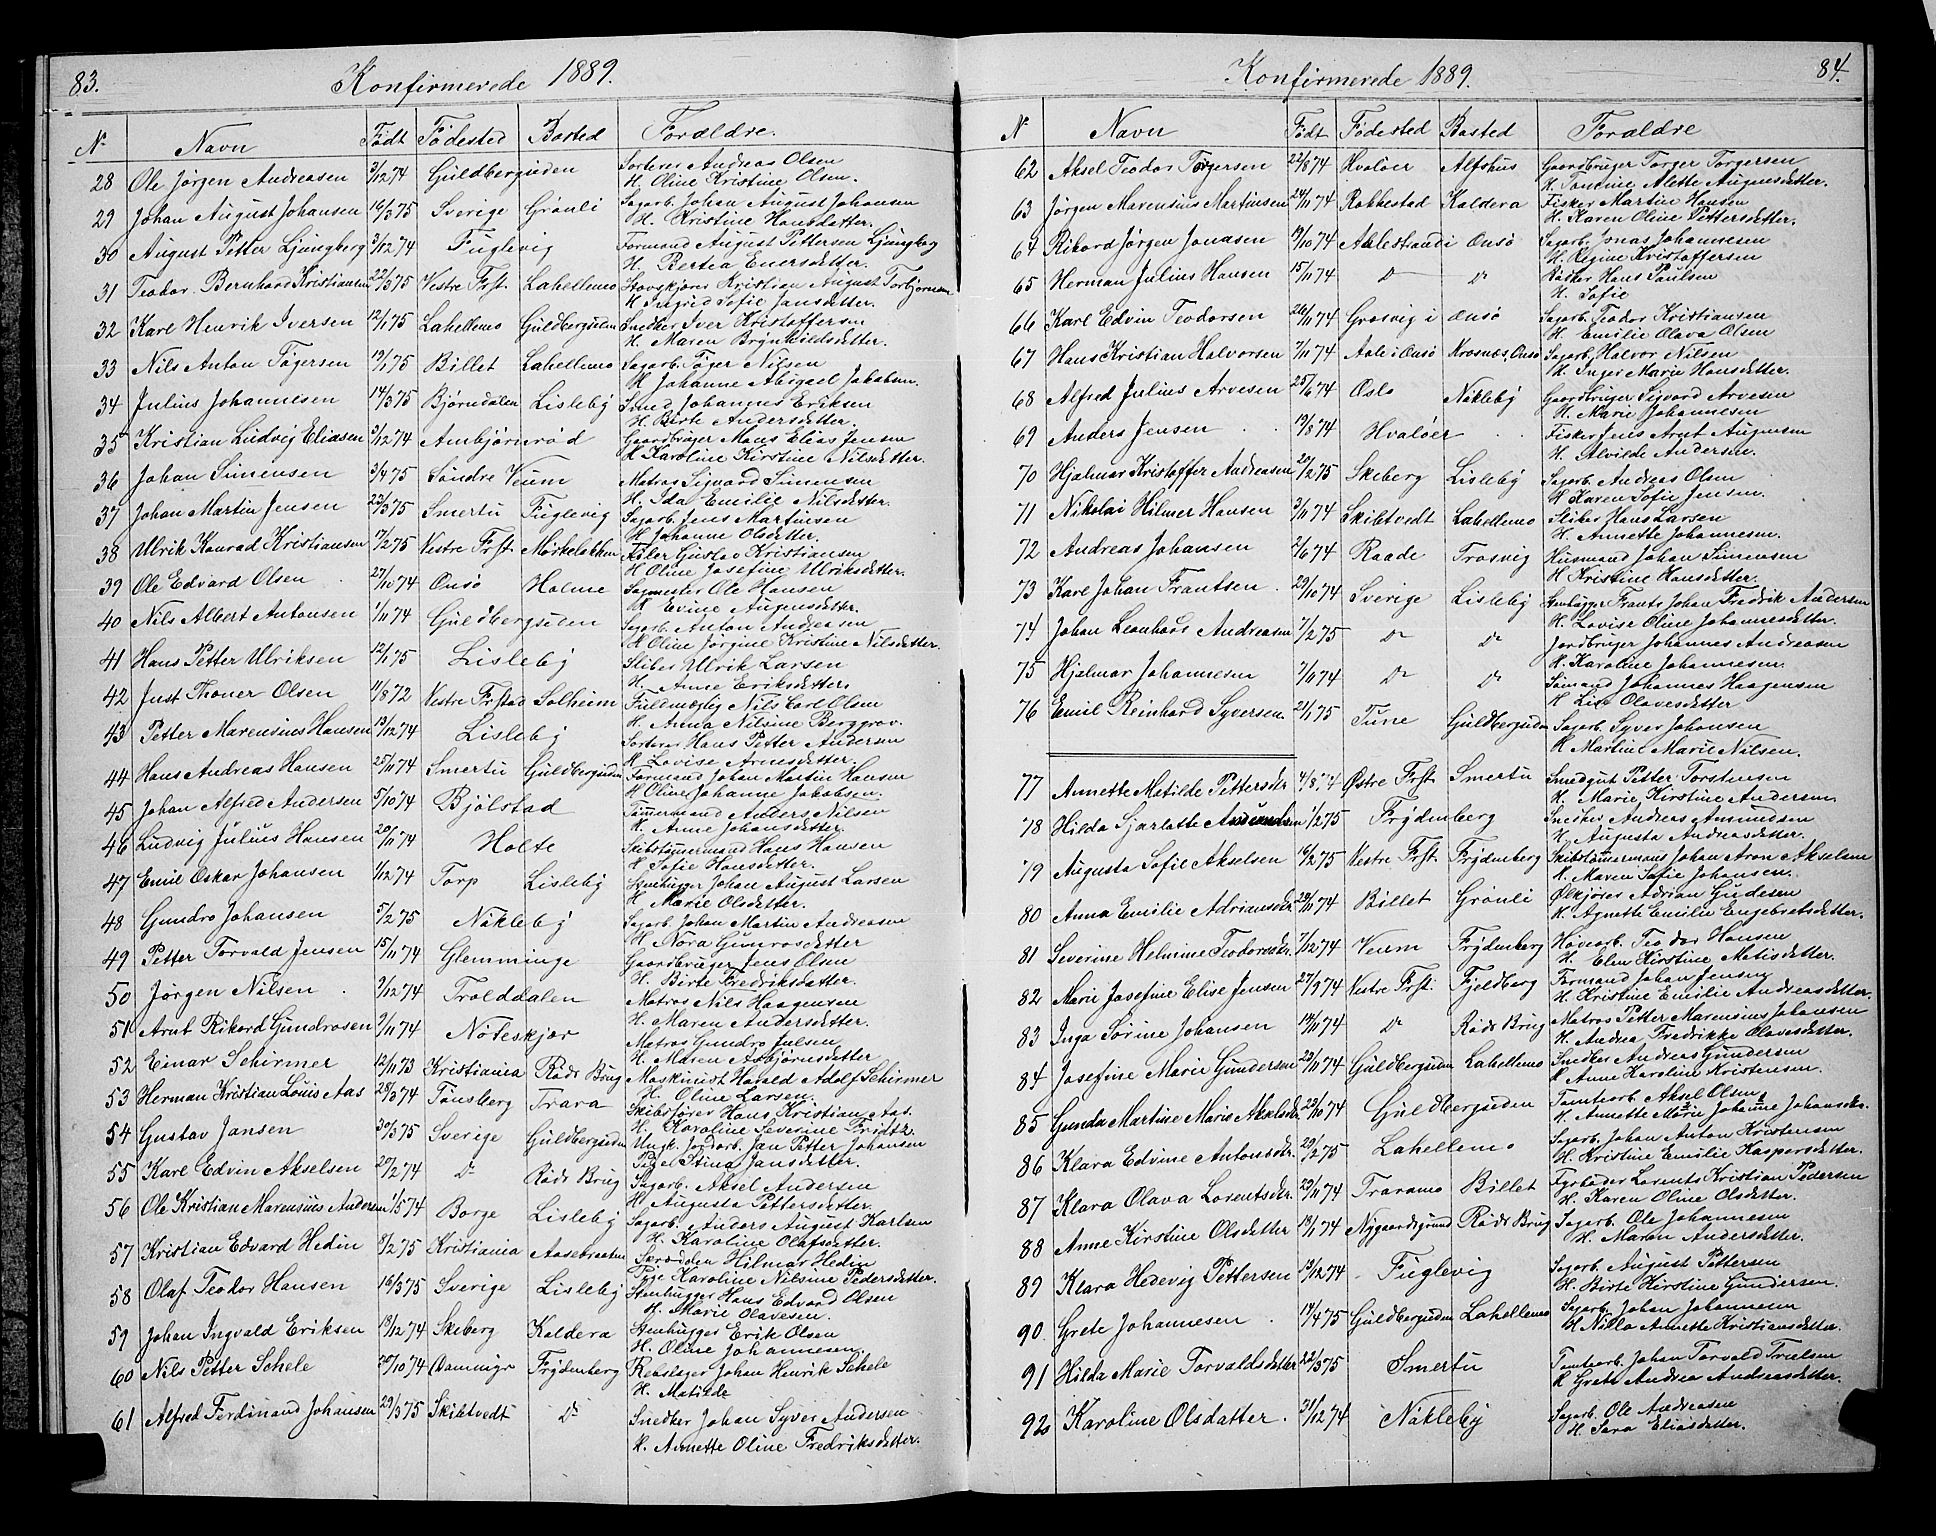 83.
Konfirmerede 1889.
N. Navn Födt Födested Bosted Forældre.
28 Ole Jörgen Andreasen 3/12 74 Guldbergsiden Sorterer Andreas Olsen
H. Oline Kristine Olsen.
29 Johan August Johansen 16/3 75 Sverige Grönli Sagarb. Johan August Johansen
H. Kristine Hansdatter.
30 August Petter Ljungberg 3/12 74 Fuglevig Formand August Pettersen Ljungberg
H. Bertea Enersdatter.
31 Teodor Bernhard Kristiansen 22/3 75 Vestre Frst. Lahellemo Kristian August Torbjörnsen
H. Ingrid Sofie Jansdatter.
32 Karl Henrik Iversen 12/1 75 Lahellemo Guldbergsiden Snedker Iver Kristoffersen
H. Maren Brynhildsdatter.
33 Nils Anton Tögersen 19/1 75 Billet Lahellemo Sagarb. Töger Nilsen
H. Johanne Abigael Jakobsen.
34 Julius Johannesen 14/3 75 Björndalen Lisleby Smed Johannes Eriksen
H. Berte Andersdatter.
35 Kristian Ludvig Eliasen 3/12 74 Ambjörnröd Gaardbruger Hans Elias Jensen
H. Karoline Kirstine Nilsdatter.
36 Johan Simensen 3/4 75 Söndre Veum Matros Sigvard Simensen
H. Ida Emilie Nilsdatter.
37 Johan Martin Jensen 22/3 75 Smertu Fuglevig Sagarb. Jens Martinsen
H. Johanne Olsdatter.
38 Ulrik Konrad Kristiansen 17/2 75 Vestre Frst. Gustav Kristiansen
H. Oline Josefine Ulriksdatter.
39 Ole Edvard Olsen 27/10 74 Onsö Holme Sagmester Ole Hansen
H. Evine Augensdatter.
40 Nils Albert Antonsen 1/11 74 Guldbergsiden Sagarb. Anton Andreasen
H. Oline Jörgine Kristine Nilsdatter.
41 Hans Petter Ulriksen 12/1 75 Lisleby Sliber Ulrik Larsen
H. Anne Eriksdatter.
42 Just Thoner Olsen 11/8 72 Vestre Frstad Solheim Fuldmægtig Nils Carl Olsen
H. Anna Nilsine Berggrav.
43 Petter Marensius Hansen 13/12 74 Lisleby Sorterer Hans Petter Andersen
H. Lovise Arnesdatter.
44 Hans Andreas Hansen 25/11 74 Smertu Guldbergsiden Formand Johan Martin Hansen
H. Oline Johanne Jakobsen.
45 Johan Alfred Andersen 5/10 74 Bjölstad Tömmermand Anders Nilsen
H. Anne Johansdatter.
46 Ludvig Julius Hansen 20/11 74 Holte Skibstömermand Hans Hansen
H. Sofie Hansdatter.
47 Emil Oskar Johansen 1/12 74 Torp Lisleby Stenhugger Johan August Larsen
H. Marie Olsdatter.
48 Gundro Johansen 5/2 75 Nökleby Sagarb. Johan Martin Andreasen
H. Nora Gunrosdatter
49 Petter Torvald Jensen 15/11 74 Glemminge Gaardbruger Jens Olsen
H. Birte Fredriksdatter.
50 Jörgen Nilsen 2/12 74 Trolddalen Matros Nils Haagensen
H. Maren Andersdatter.
51 Arnt Rikard Gundrosen 9/11 74 Nöteskjær Matros Gundro Julsen
H. Maren Asbjörnsdatter
52 Einar Schirmer 12/11 73 Kristiania Röds Brug Maskinist Harald Adolf Schirmer
H. Oline Larsen.
53 Herman Kristian Louis Aas 28/3 74 Tönsberg Trara Skibsförer Hans Kristian Aas.
H. Karoline Severine Fridtz.
54 Gustav Jansen 30/3 75 Sverige Guldbergsiden Ungk. Jordarb. Jan Petter Johansen
Pige Stina Jansdatter.
55 Karl Edvin Akselsen 27/2 74 Do Röds Brug Sagarb. Aksel Andersen
H. Augusta Pettersdatter.
56 Ole Kristian Marensius Andersen 1/5 74 Borge Lisleby Sagarb. Anders August Karlsen
H. Karoline Olafsdatter.
57 Kristian Edvard Hedin 8/2 75 Kristiania Aasebraaten Skrædder Hilmar Hedin
Pige Karoline Nilsine Pedersdatter.
58 Olaf Teodor Hansen 16/3 75 Sverige Lisleby Stenhugger Hans Edvard Olsen
H. Marie Olavesen.
59 Johan Ingvald Eriksen 13/12 74 Skeberg Kaldera Stenhugger Erik Olsen
H. Oline Johannesen
60 Nils Petter Schele 20/10 74 Frydenberg Rebslager Johan Henrik Schele
H. Matilde
61 Alfred Ferdinand Johansen 29/3 75 Skibtvedt Do Snedker Johan Syver Andersen
H. Annette Oline Fredriksdatter.
84.
Konfirmerede 1889.
N Navn Födt Födested Bosted Forældre
62 Aksel Teodor Torgersen 22/8 74 Hvalöer Alfshus Gaardbruger Torger Torgersen
H. Tomine Alette Augensdatter.
63 Jörgen Marensius Martinsen 24/11 74 Rakkestad Kaldera Fisker Martin Hansen
H. Karen Oline Pettersdatter.
64 Rikard Jörgen Jonasen 19/10 74 Alestrand i Onsö Sagarb. Jonas Johannesen
H. Regine Kristoffersen
65 Herman Julius Hansen 15/11 74 Do Do Hans Paulsen
H. Sofie
66 Karl Edvin Teodorsen 26/11 74 Grosvig i Onsö Sagarb. Teodor Kristiansen
H. Emilie Olava Olsen
67 Hans Kristian Halvorsen 7/11 74 Aale i Onsö Krosnæs, Onsö Sagarb. Halvor Nilsen
H. Inger Marie Hansdatter.
68 Alfred Julius Arvesen 25/6 74 Oslo Nökleby Gaardbruger Sigvard Arvesen
H. Marie Johannesen
69 Anders Jensen 19/8 74 Hvalöer Fisker Jens Arnt Augensen
H. Alvilde Andersen.
70 Hjalmar Kristoffer Andreasen 20/2 75 Skeberg Lisleby Sagarb. Andreas Olsen
H. Karen Sofie Jensen.
71 Nikolai Hilmer Hansen 3/11 74 Skibtvedt Lahellemo Sliber Hans Larsen
H. Annette Johannesen.
72 Andreas Johansen 2/6 74 Raade Trosvig Husmand Johan Simensen
H. Kristine Hansdatter.
73 Karl Johan Frantsen 29/10 74 Sverige Lisleby Stenhugger Frants Johan Fredrik Andersen
H. Lovise Oline Johannesdatter.
74 Johan Leonhard Andreasen 7/2 75 Do Do Jordbruger Johannes Andreasen
H. Karoline Johannesen.
75 Hjalmar Johannesen 7/10 74 Do Do Sömand Johannes Haagensen
H. Lina Olavesdatter
76 Emil Reinhard Syversen 21/1 75 Tune Guldbergsiden Sagarb. Syver Johansen
H. Martine Marie Nilsen.
77 Annette Matilde Pettersdtr 4/8 74 Östre Frst. Smertu Smedgut Petter Torstensen
H. Marie Kirstine Andersen
78 Hilda Sjarlotte Amundsen 1/2 75 Frydenberg Snedker Andreas Amundsen
H. Augusta Andreasdatter.
79 Augusta Sofie Akselsen 16/2 75 Vestre Frst. Frydenberg Skibstömermand Johan Aron Akselsen
H. Maren Sofie Johansen.
80 Anna Emilie Adriansdtr. 29/11 74 Billet Grönli Ölkjörer Adrian Gudesen
H. Agnette Emilie Engebretsdatter.
81 Severine Helmine Teodorsdtr. 7/12 74 Veum Frydenberg Hövlearb. Teodor Hansen
H. Elen Kirstine Matisdatter.
82 Marie Josefine Elise Jensen 27/9 74 Vestre Frst. Fjeldberg Formand Johan Jensen
H. Kristine Emilie Andreasdatter.
83 Inga Sörine Johansen 14/11 74 Do Röds Brug Matros Petter Marensius Johansen
H. Andrea Fredrikke Olavesdatter.
84 Josefine Marie Gundersen 23/10 74 Guldbergsiden Lahellemo Snedker Andreas Gundersen
H. Anne Karoline Kristensen.
85 Gunda Martine Marie Akselsdtr. 22/10 74 Guldbergsiden Tomtearb. Aksel Olsen
H. Annette Marie Johanne Johansdtr.
86 Klara Edvine Antonsdtr. 20/2 75 Lahellemo Sagarb. Johan Anton Kristensen
H. Kristine Emilie Kaspersdatter.
87 Klara Olava Lorentsdtr. 29/11 74 Traramo Billet Fyrböder Lorents Kristian Pedersen
H. Karen Oline Olsdatter.
88 Anne Kirstine Olsdatter 13/1 74 Nygaardsgrund Röds Brug Sagarb. Ole Johannesen
H. Maren Andersdatter.
89 Klara Hedevig Pettersen 13/12 74 Fuglevig Sagarb. August Pettersen
H. Birte Kirstine Gundersen.
90. Grete Johannesen 14/4 75 Guldbergsiden Lahellemo Sagarb. Johan Johannesen
H. Nikla Annette Kristiansdatter.
91 Hilda Marie Torvaldsdatter 22/3 75 Smertu Tomtearb. Johan Torvald Troelsen
H. Grete Andrea Andreasdatter.
92 Karoline Olsdatter. 31/12 74 Nökleby Sagarb. Ole Andreasen
H. Sara Eliasdatter.